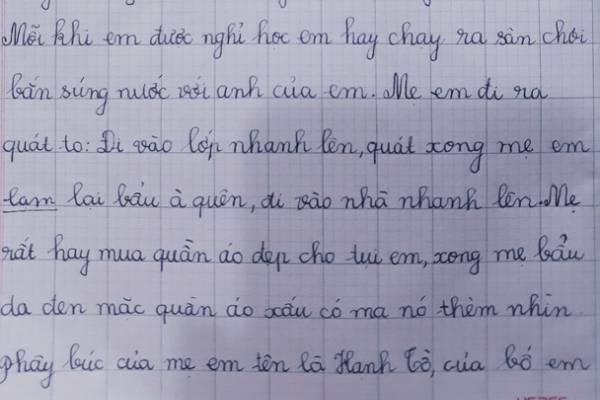 Mỗi khi em được nghỉ học em hay chạy ra sân chơi
bắn súng nước với anh của em. Mẹ em đi ra
quát to: Đi vào lớp nhanh lên, quát xong mẹ em
lam lại bẩu à quên, đi vào nhà nhanh lên. Mẹ
rất hay mua quần áo đẹp cho tụi em, xong mẹ bẩu
da đen mặc quần áo xấu có ma nó thèm nhìn
phây búc của mẹ em tên là Hanh Gò, của bố em